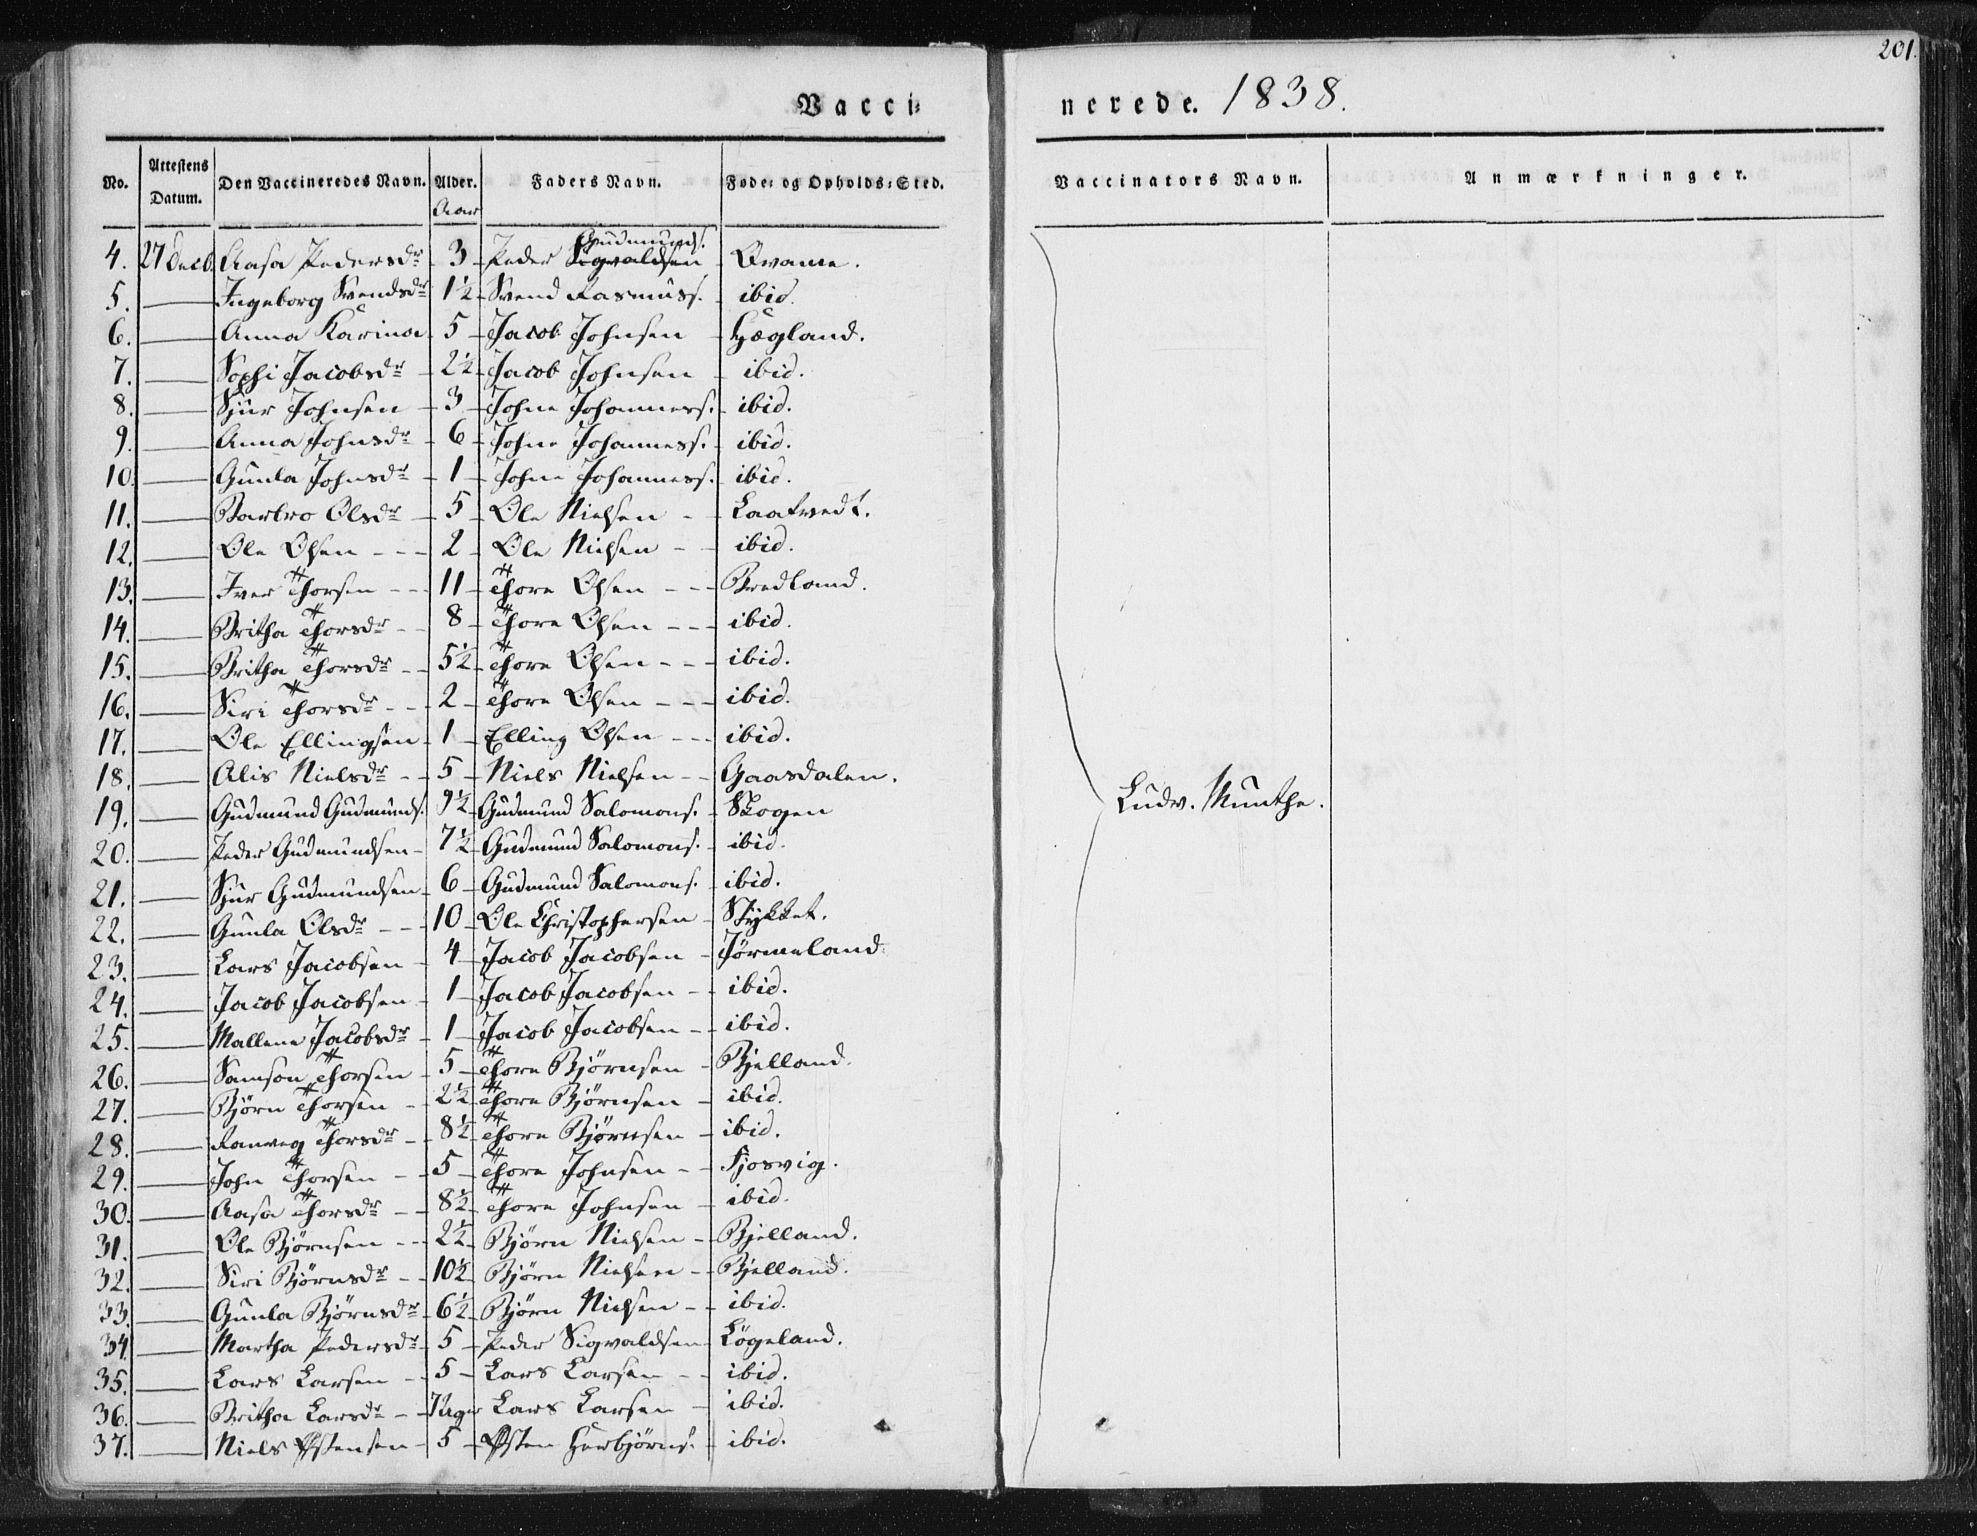 201.
Vacci- nerede. 1838.
No. Attestens Datum. Den Vaccineredes Navn. Alder. Faders Navn. Føde- og Opholds-Sted. Vaccinators Navn. Anmærkninger.
Aar
Gudmunds.
4. 27 Decb. Aasa Pedersdr 3 Peder Sigvaldsen Qvame.
5. — Ingeborg Svendsdr 1½ Svend Rasmuss. ibid.
6. — Anna Karina 5 Jacob Johnsen Hægland.
7. — Sophi Jacobsdr 2½ Jacob Johnsen ibid.
8. — Sjur Johnsen 3 John Johanness. ibid.
9. — Anna Johnsdr 6 John Johanness. ibid.
10. — Gunla Johnsdr 1 John Johanness. ibid.
11. — Barbro Olsdr 5 Ole Nielsen Laatvedt.
12. — Ole Olsen 2 Ole Nielsen ibid.
13. — Iver Thorsen 11 Thore Olsen Bredland.
14. — Britha Thorsdr 8 Thore Olsen ibid.
15. — Britha Thorsdr 5½ Thore Olsen ibid.
16. — Siri Thorsdr 2 Thore Olsen ibid.
17. — Ole Ellingsen 1 Elling Olsen ibid.
18. — Alis Nielsdr 5 Niels Nielsen Gaasdalen.
19. — Gudmund Gudmunds. 9½ Gudmund Salomons. Skogen
Ludv. Munthe.
20. — Peder Gudmundsen 7½ Gudmund Salomons. ibid.
21. — Sjur Gudmundsen 6 Gudmund Salomons. ibid.
22. — Gunla Olsdr 10 Ole Christophersen Stykket.
23. — Lars Jacobsen 4 Jacob Jacobsen Jørmeland.
24. — Jacob Jacobsen 1 Jacob Jacobsen ibid.
25. — Mallene Jacobsdr 1 Jacob Jacobsen ibid.
26. — Samson Thorsen 5 Thore Bjørnsen Bjelland.
27. — Bjørn Thorsen 2½ Thore Bjørnsen ibid.
28. — Ranveg Thorsdr 8½ Thore Bjørnsen ibid.
29. — John Thorsen 5 Thore Johnsen Fjosvig.
30. — Aasa Thorsdr 8½ Thore Johnsen ibid.
31. — Ole Bjørnsen 2½ Bjørn Nielsen Bjelland.
32. — Siri Bjørnsdr 10½ Bjørn Nielsen Bjelland.
33. — Gunla Bjørnsdr 6½ Bjørn Nielsen ibid.
34. — Martha Pedersdr 5 Peder Sigvaldsen Løgeland.
35. — Lars Larsen 5 Lars Larsen ibid.
36. — Britha Larsdr Lars Larsen ibid.
37. — Niels Østensen 5 Østen Herbjörns. ibid.